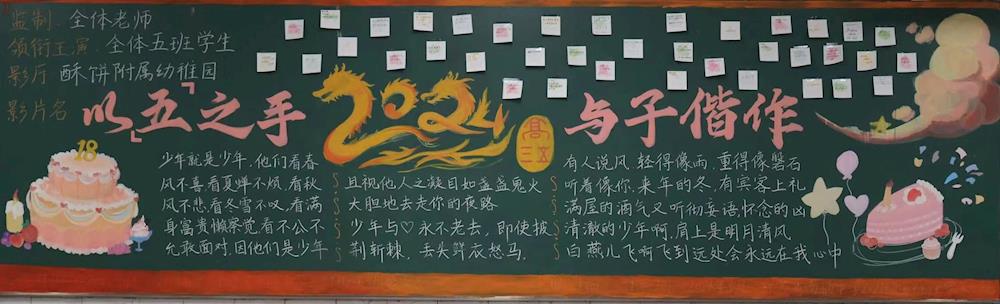 监制 全体老师
领衔主演 全体五班学生
影片 酥饼附属幼稚园
影片名
以「五」之手
2024
高三五
与子偕作
18
少年就是少年,他们看春
风不喜看夏蝉不烦,看秋
风不悲看冬雪不叹,看满
身富贵懒察觉看不公不
允敢面对,因他们是少年
且视他人之凝目如盏盏鬼火
大胆地去走你的夜路
少年与♡永不老去,即使披
荆斩棘,丢失鲜衣怒马.
有人说风,轻得像雨,重得像磐石
听着像你,来年的冬,有宾客上礼
满屋的酒气又听彻妄语,怀念的凶
清澈的少年啊,肩上是明月清风
白燕儿飞啊飞到远处会永远在我心中